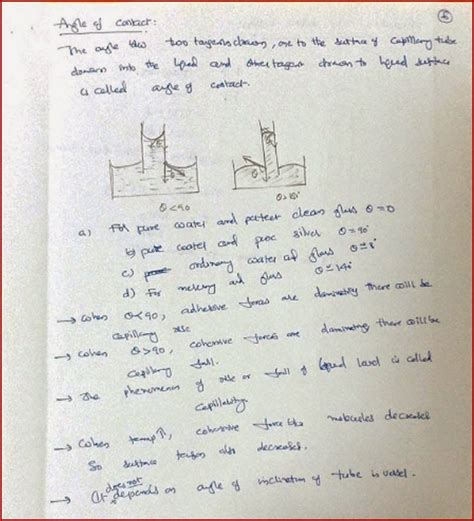 6
Angle of contact:
The angle b/w two tangents drawn, one to the surface of capillary tube
down into the liquid and other tangent drawn to liquid surface
is called angle of contact.
θ<90 θ>90
a) For pure water and perfect clean glass θ=0
b) pure water and pure silver θ=90°
c) ordinary water ad glass θ≃8°
d) For mercury ad glass θ≃140
→ when θ<90, adhesive forces are dominating there will be
capillary rise
→ when θ>90, cohesive forces are dominating there will be
capillary fall.
→ The phenomenon of rise or fall of liquid level is called
capillarity.
→ when temp↑, cohesive force b/w molecules decreases
So surface tension also decreases.
→ It does not depends on angle of inclination of tube in vessel.